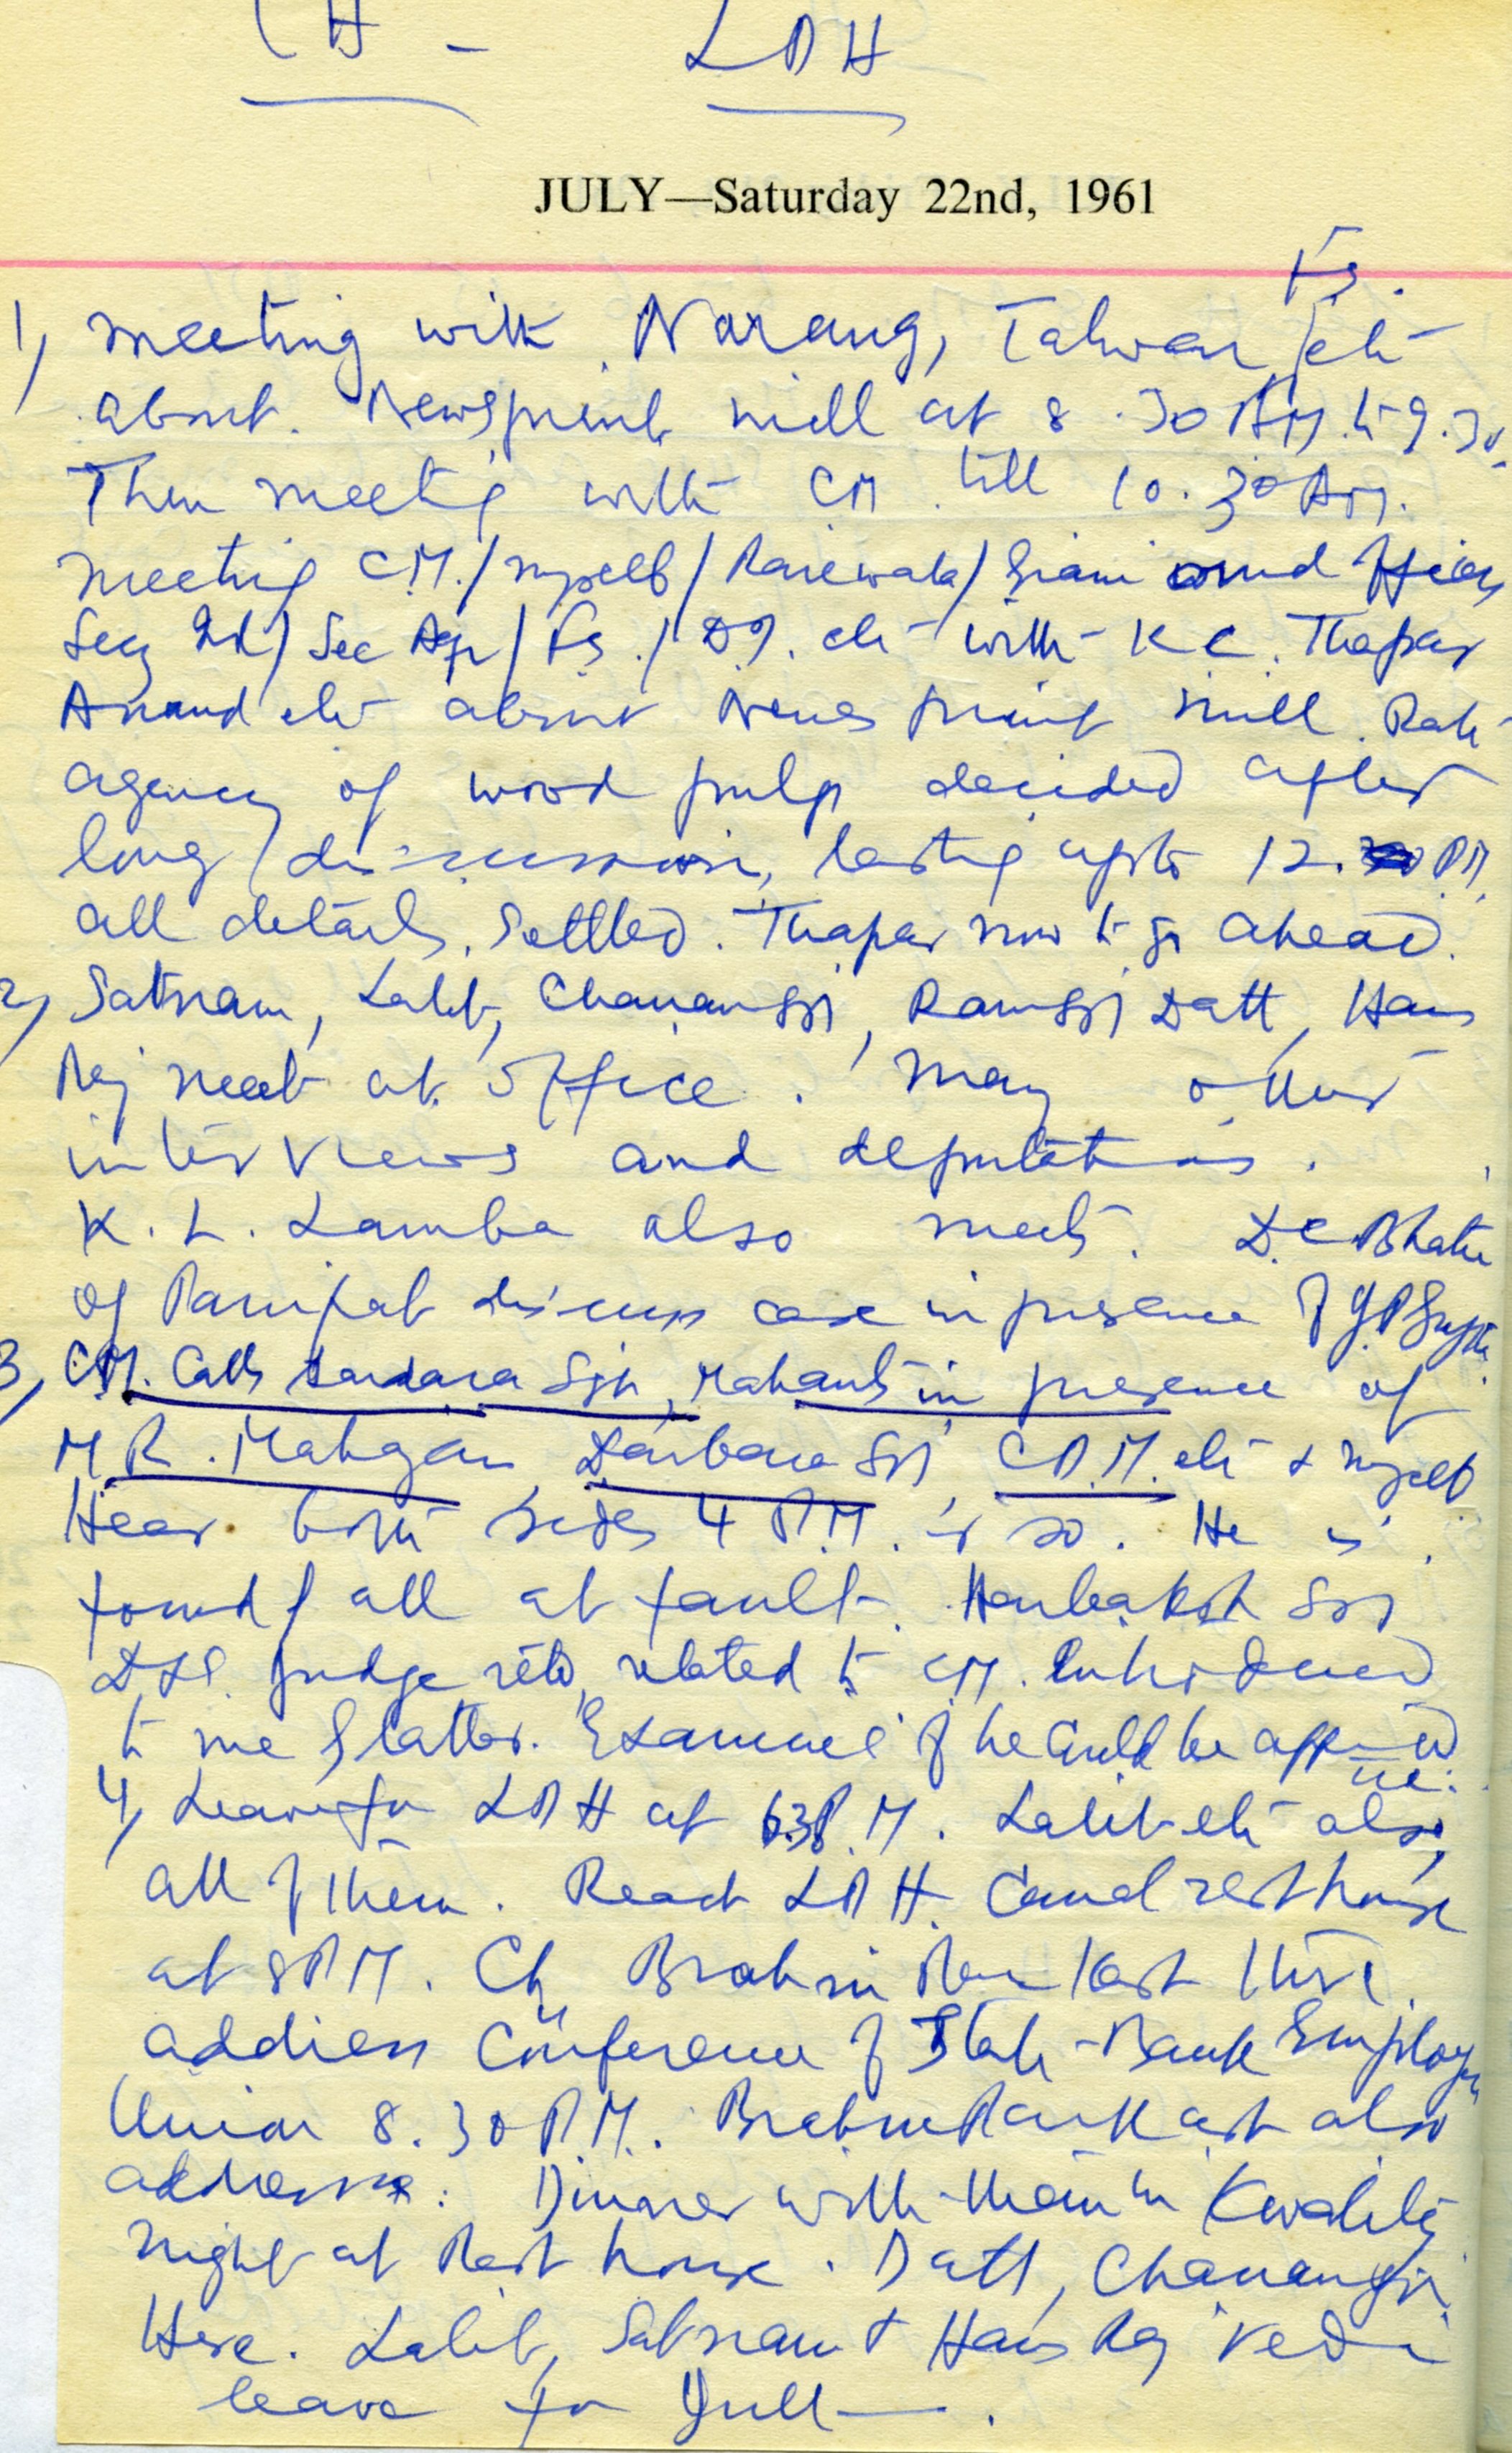 CH - LDH
JULY—Saturday 22nd, 1961
FS.
1, Meeting with Narang, Talwar / etc
about Newsprint mill at 8.30 AM. to 9.30.
Then meeting with CM till 10.30 AM.
Meeting C.M./myself/Rarewala/Giani and officers
Secy Ind/Sec Agr/FS./D9. etc with K C. Thapar
Anand etc about News print mill. Rate
agency of wood pulp decided after
long discussion, lasting upto 12. PM.
all details settled. Thapar now to go ahead.
2, Satnam, Lalit, Chanan Sgh, Ram Sgh Datt, Hans
Raj meet at office. Many other
interviews and deputations.
K. L. Lamba also meets. D.C Bhatia
of Panipat discuss case in presence of
3, C.M. Calls Sgh, Mahant in presence of
M.R. Mahajan, Darbara Sgh, C.P.M. etc & myself
Hear both sides 4 P.M. or so. He is
found of all at fault. Harbaksh Sgh
D&S. Judge retd, related to CM. Introduced
to me by latter. Examine if he could be appointed
4, Leave for LDH at 6.30 P.M. Lalit etc also,
all of them. Reach LDH. Canal rest house
at 8 PM. Ch Brahm Parkash there.
address Conference of State Bank Employees
Union 8.30 P.M. Brahm Parkash also
address. Dinner with them in Kwality
Night at Rest house. Datt, Chanan Sgh
Here. Lalit, Satnam & Hans Raj Vedi
leave for Jull—.